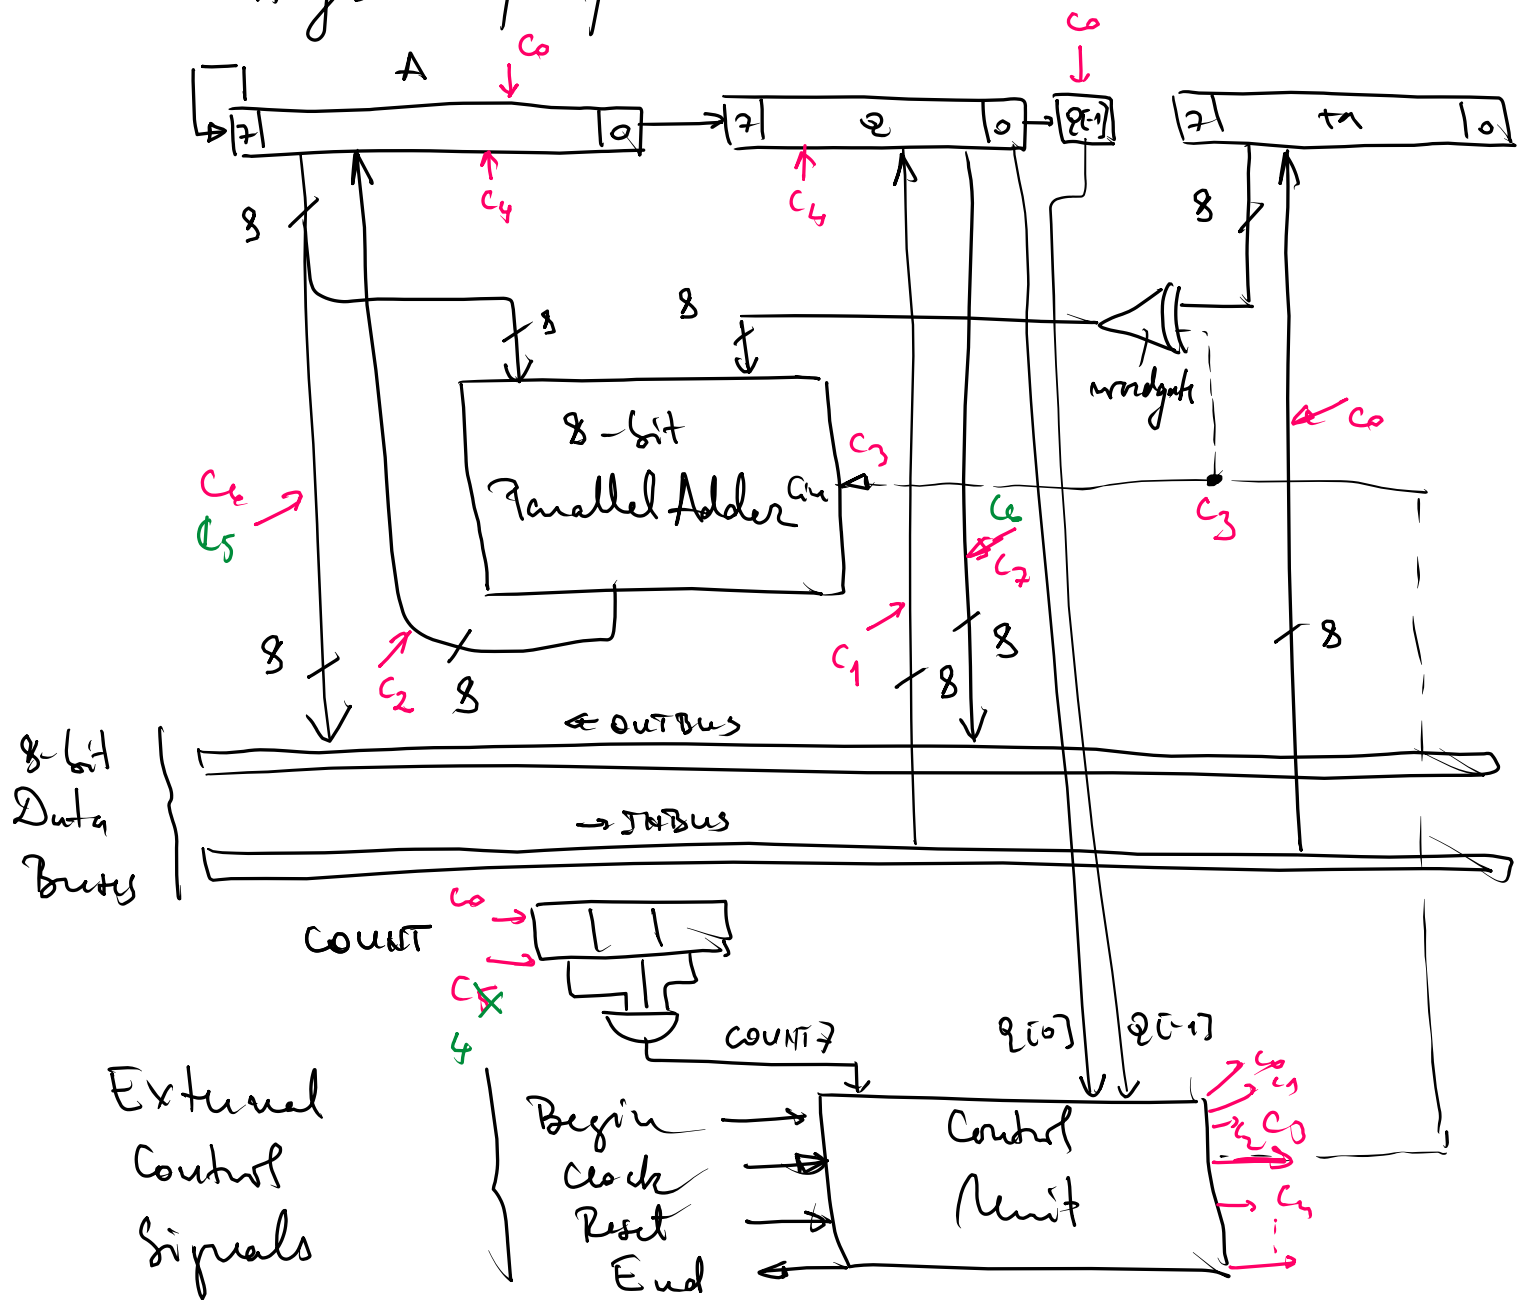 c0
A
c0
7
0
7
Q
0
Q[-1]
7
M
0
c4
c4
8
8
8
8
wordgate
8-bit
Parallel Adder
Cin
c3
c0
c3
c5
c6
c7
c1
c2
8
8
8
8
8
← OUTBUS
8-bit
Data
Buses
→ INBUS
c0
COUNT
c5
4
COUNT7
Q[0]
Q[-1]
External
Control
Signals
Begin
Clock
Reset
End
Control
Unit
c0
c1
c2
c3
c4